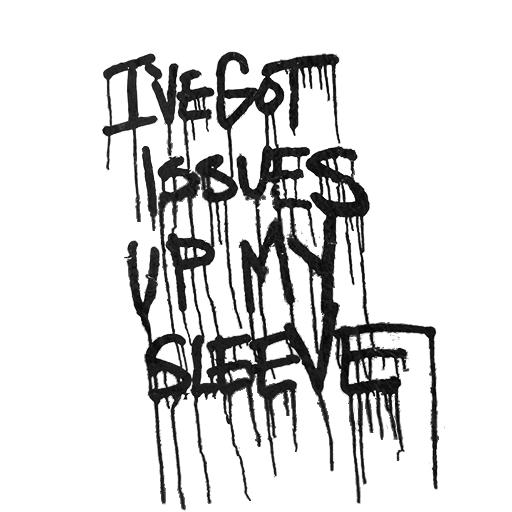 I'VE GOT
ISSUES
UP MY
SLEEVE